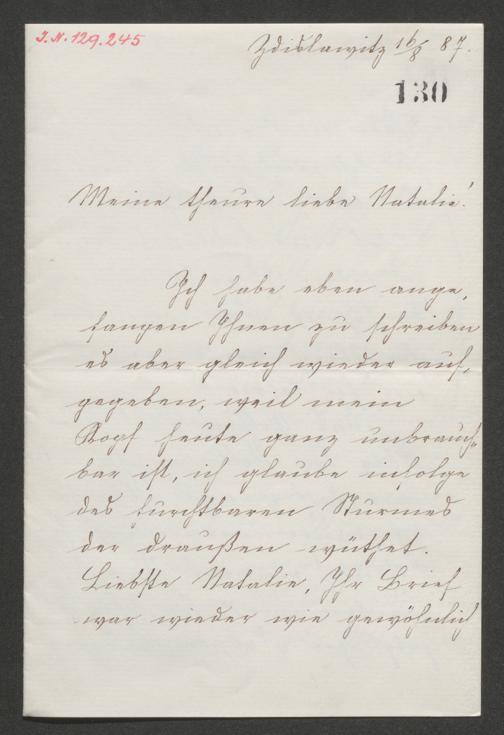 J.N. 129.245
Zdislawitz 16/8 87.
130
Meine theure liebe Natalie!
Ich habe eben ange,
fangen Ihnen zu schreiben
es aber gleich wieder auf,
gegeben, weil mein
Kopf heute ganz unbrauch-
bar ist, ich glaube infolge
des furchtbaren Sturmes
der draußen wüthet.
Liebste Natalie, Ihr Brief
war wieder wie gewöhnlich